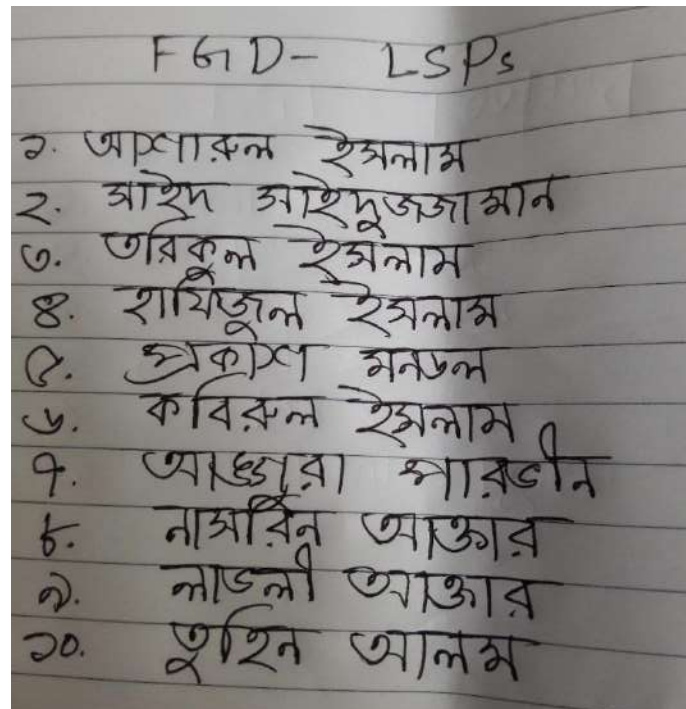 FGD- LSPs
১. আশারুল ইসলাম
২. সাইদ সাইদুজজামান
৩. তরিকুল ইসলাম
৪. হাফিজুল ইসলাম
৫. প্রকাশ মনডল
৬. কবিরুল ইসলাম
৭. পারভীন
৮. নাসরিন আক্তার
৯. লাভলী আক্তার
১০. তুহিন আলম